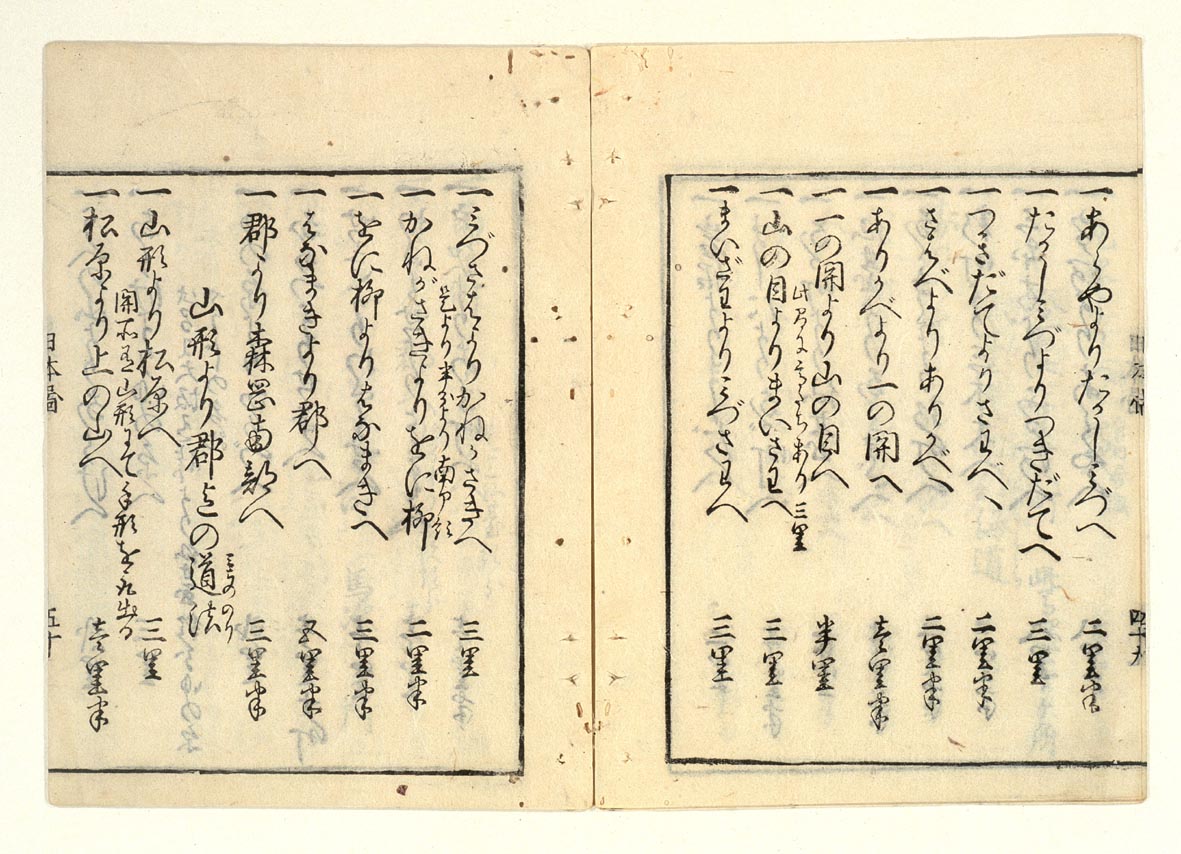 一 あらやよりたかしみづへ 二里半
一 たかしみづよりつきだてへ 三里
一 つきだてよりさわべへ 二里半
一 さわべよりありかべへ 二里半
一 ありかべより一の関へ 壱里半
一 一の関より山の目へ 半里
此間に たち あり 三里
一 山の目よりまいさわへ 三里
一 まいざわよりみづさわへ 三里
四十九
一 みづさわよりかねがさきへ 三里
是より半分より南部領
一 かねがさきよりをに柳 二里半
一 をに柳よりはなまきへ 三里半
一 はなまきより郡へ 五里半
一 郡より森岡南部へ 三里半
山形より郡迄の道法
みちののり
一 山形より松原へ 三里
関所有山形にて手形を取出る
一 松原より上の山へ 壱里半
日本
五十